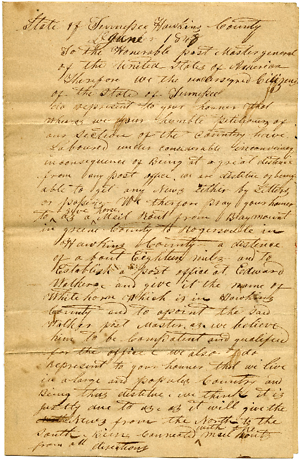 State of Tennessee Hawkins County
June 1848
To the Honorable post Master general
of the United States of America
Therefor We the undersigned Citizens
of the State of Tennessee
do represent to your honner that
whereas we your humble petitioners of
our Section of the Country have
Laboured under considerable Inconveniancy
inconsequence of Being at a great distance
from any post office, we are destitute of being
able to get any News Either by Letters,
or papers We therefore pray your honner
to a Mail Rout from Blaymount
in green County to Rogersville in
Hawkins County a distence
of a bout Eighteen miles and to
Establish a post office at Edward
and give it the name of
White horn Which is in Hawkins
County and to apoint the said
Walker post Master, as we believe
him to be Compitent and qualified
for the office we also do
Represent to your honner that we live
in a large and populus Country and
Being thus destitue, we think it is
partly due to us as it will give the
News from the North to the
South, Being Connected with the Mail Rout
from all directions